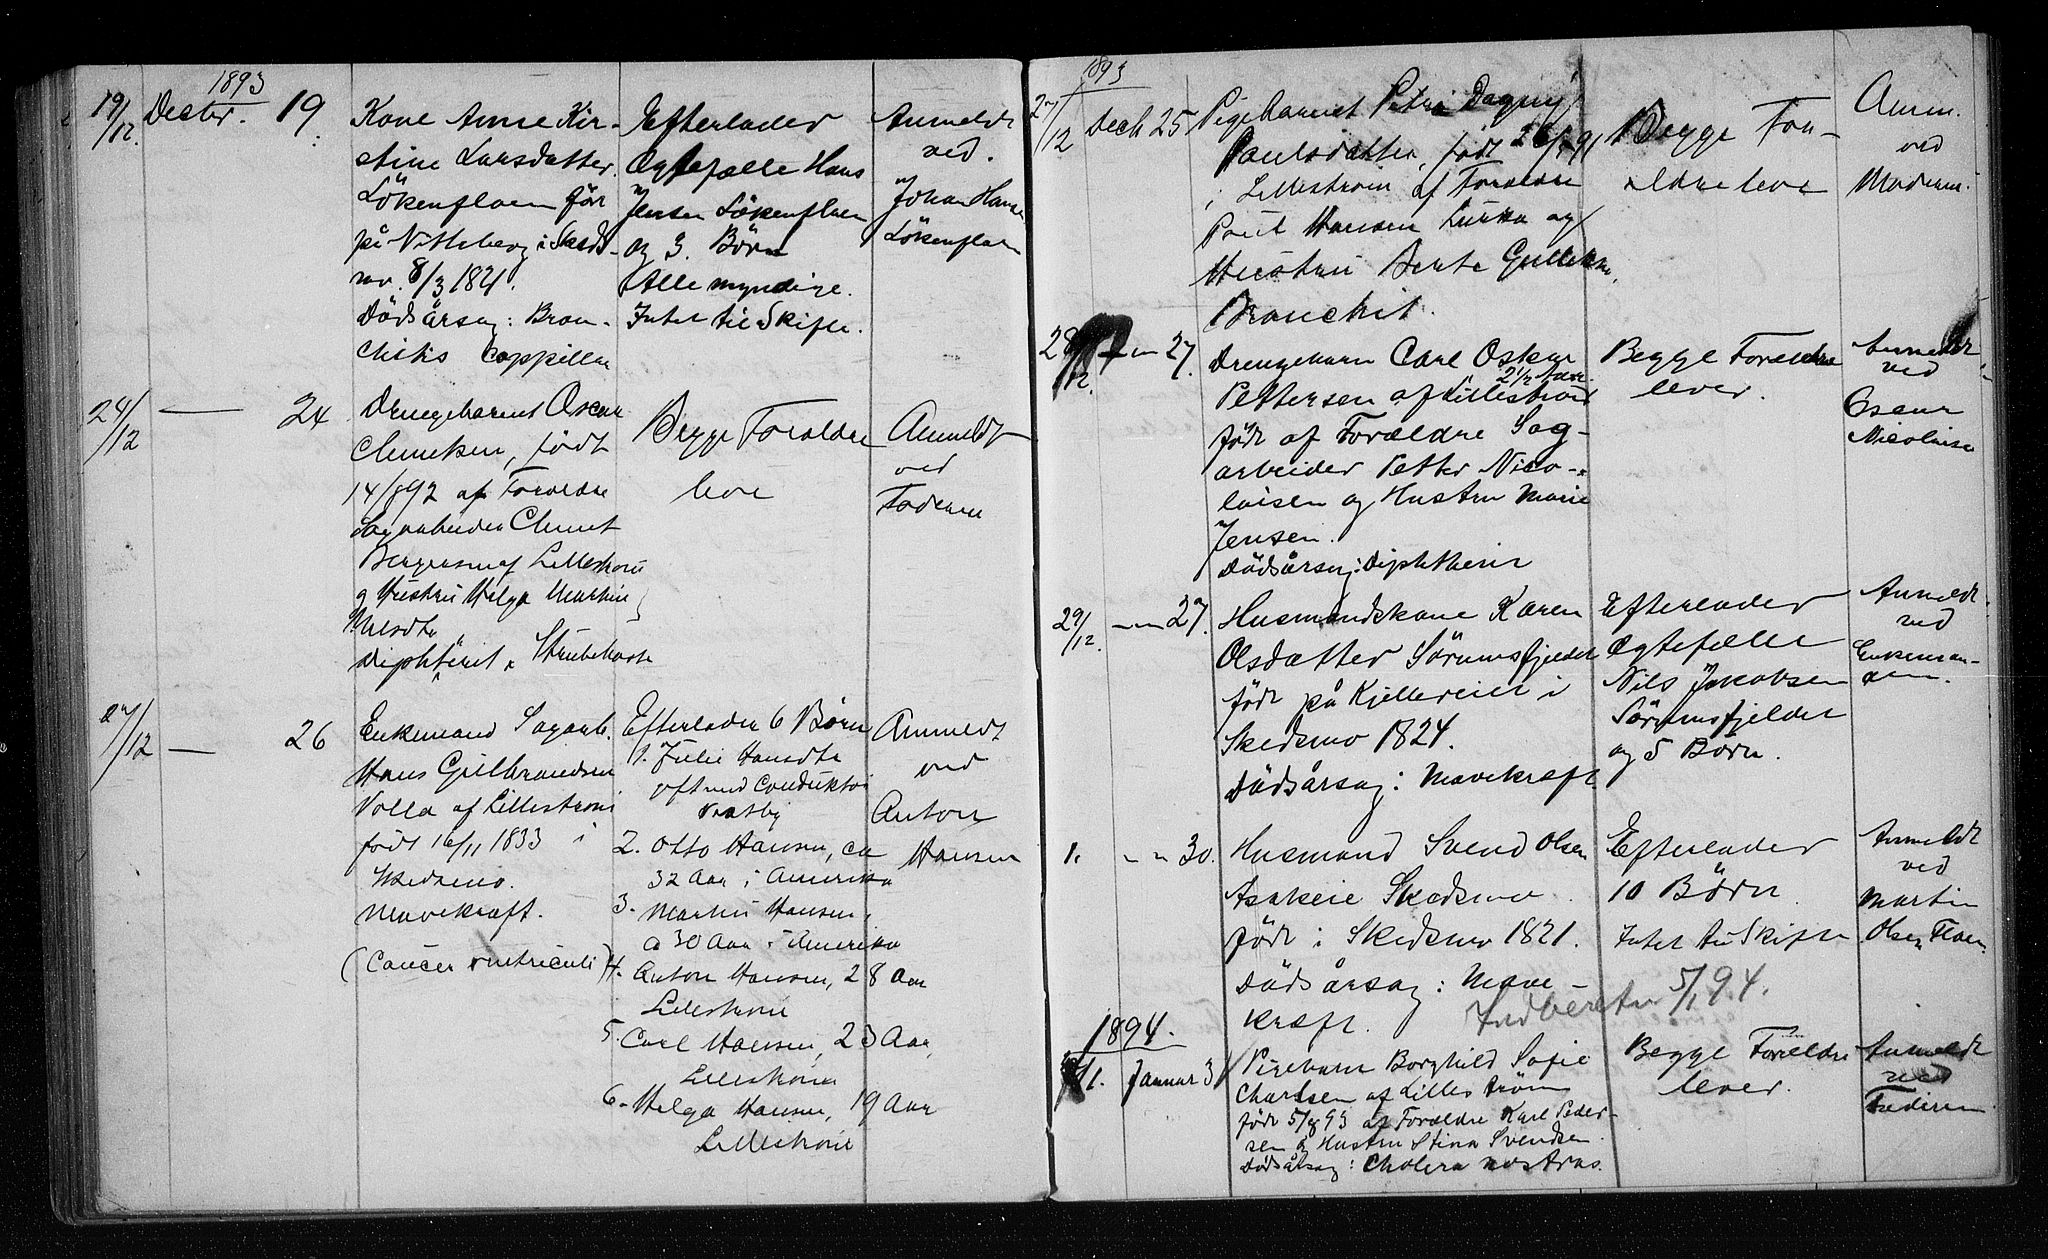 1893
19/12. Decbr. 19.
Kone Anne Kir-
stine Larsdatter,
Lökenflaen född
på Nitteberg i Skeds-
mo. 8/3 1821.
Dödsårsag: Bron-
chitis Cappillar
Efterlader
Ægtefælle Hans
Jensen Lökenflaen
og 3. Börn
Alle myndige.
Intet til Skifte.
Anmeldt
ved.
Johan Hansen
Lökenflaen
24/12 — 24
Drengebarnet Oscar
Clemetsen, födt
14/8 92 af Forældre
Sagarbeider Clemet
Bergersen af Lillestrøm
og Hustru Helga Martine
Nilsdtr
Diphterit, Strubehoste
Begge Forældre
leve
Anmeldt
ved
Faderen
27/12 — 26
Enkemand Sagarb.
Hans Gulbrandsen
Volla af Lillestrøm
født 16/11 1833 i
Skedsmo.
Mavekræft.
(Cancer ventriculi)
Efterlader 6 Børn
1. Julie Hansdtr
gift med Conduktör
2. Otto Hansen, ca
32 Aar i Amerika
3. Martin Hansen,
ca 30 Aar i Amerika
4. Anton Hansen, 28 Aar
Lillestrøm
5. Carl Hansen, 23 Aar,
Lillestrøm
6. Helga Hansen, 19 Aar
Lillestrøm
Anmeldt
ved
Anton
Hansen
1893
27/12 Decb 25
Pigebarnet Petra Dagny
Paulsdatter, født 91
i Lillestrøm af Forældre
Paul Hansen og
Hustru Berte Gulliksen.
Bronchit.
Begge For-
ældre leve
Anm.
ved
Moderen.
28/12. — " 27.
Drengebarn Carl Oskar
2 1/2 Aar
Pettersen af Lillestrøm
född af Forældre Sag-
arbeider Petter Nico-
laisen og Hustru Marie
Jensen.
Dödsårsag: Diphtherie
Begge Forældre
lever.
Anmeldt
ved
Oscar
Nicolaisen
29/12. — " 27.
Husmandskone Karen
Olsdatter Sörumsfjeldet
född på Kjellereie i
Skedsmo 1824.
Dödsårsag: Mavekræft
Efterlader
Ægtefælle
Nils Jakobsen
Sörumsfjeldet
og 5 Börn.
Anmeldt
ved
Enkeman-
den.
1. " " 30.
Husmand Svend Olsen
Asakeie Skedsmo
född i Skedsmo 1821.
Dödsårsag: Mave-
kræft.
Efterlader
10 Börn
Intet til Skifte
Anmeldt
ved
Martin
Olsen Flaen
Indberetn 5/1 94.
1894.
1. Januar 3
Pigebarn Borghild Sofie
Charlsen af Lilleström
född 5/8 93 af Forældre Karl Peder-
sen og Hustru Stina Svendsen
Dödsårsag: Cholera nostras.
Begge Forældre
lever.
Anmeldt
ved
Faderen